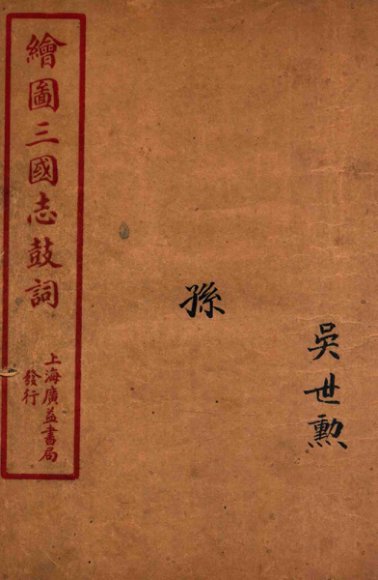 繪圖三國志鼓詞
上海廣益書局
發行
孫
吳世勲